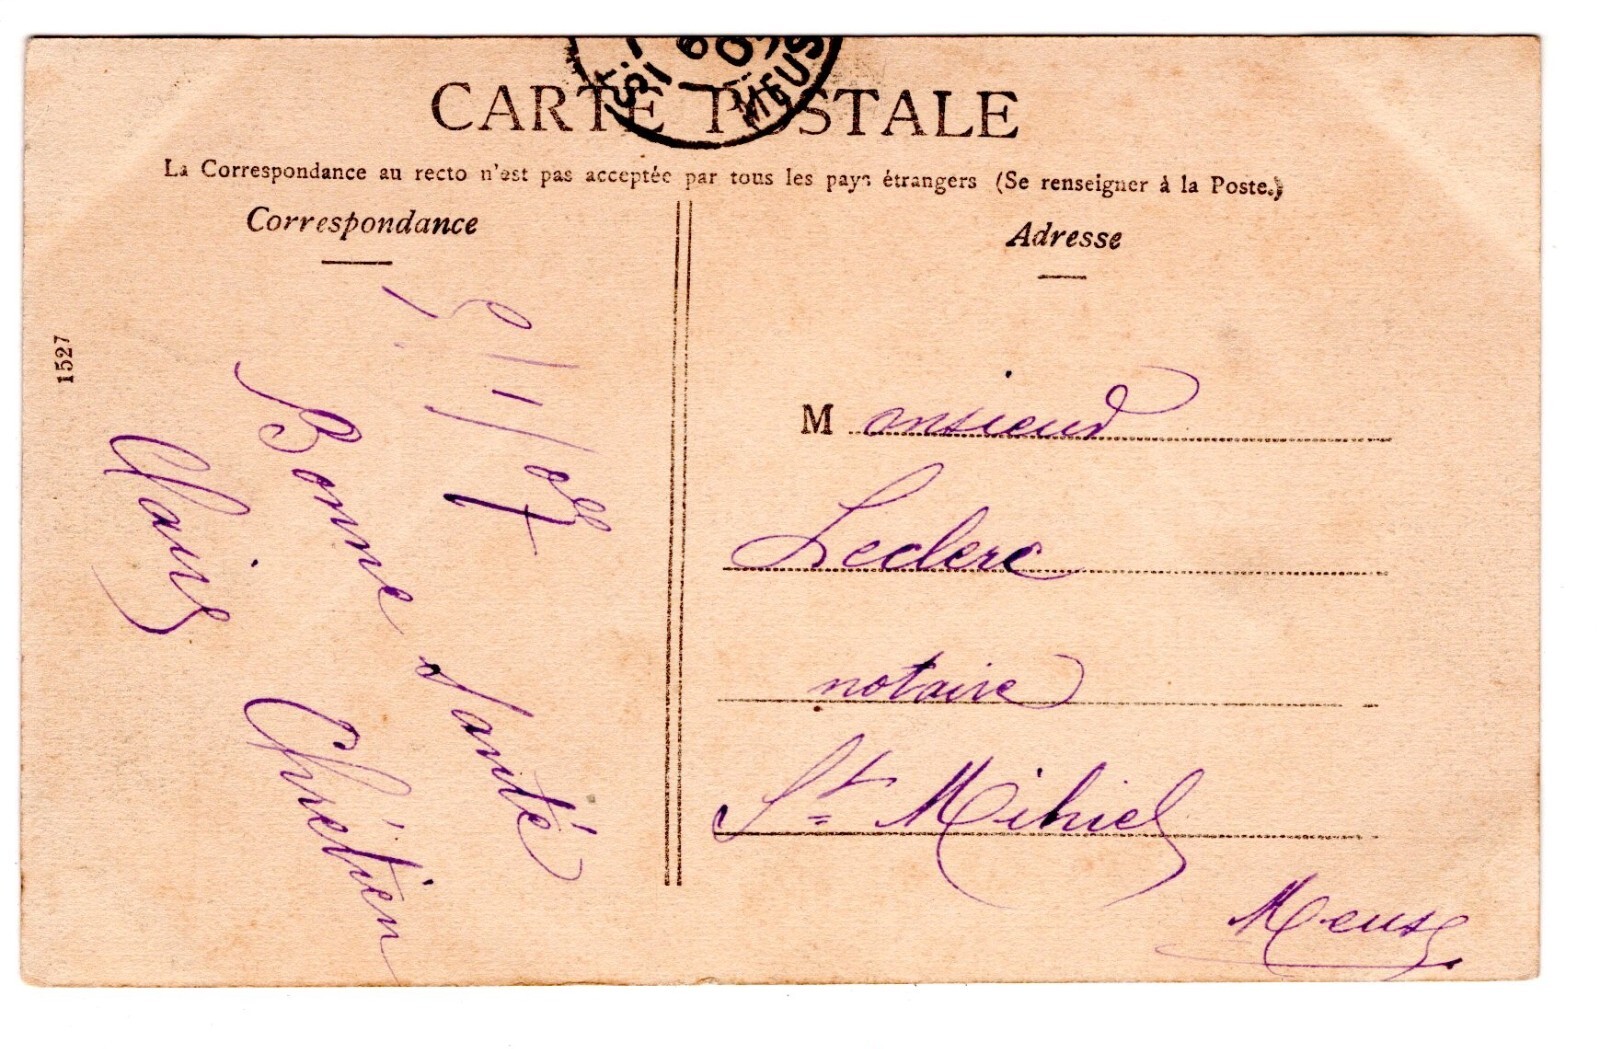 CARTE POSTALE
La Correspondance au recto n'est pas acceptée par tous les pays étrangers (Se renseigner à la Poste.)
Correspondance
Adresse
1527
Bonne santé
Chrétien
Monsieur
Leclerc
notaire
St Mihiel
Meuse